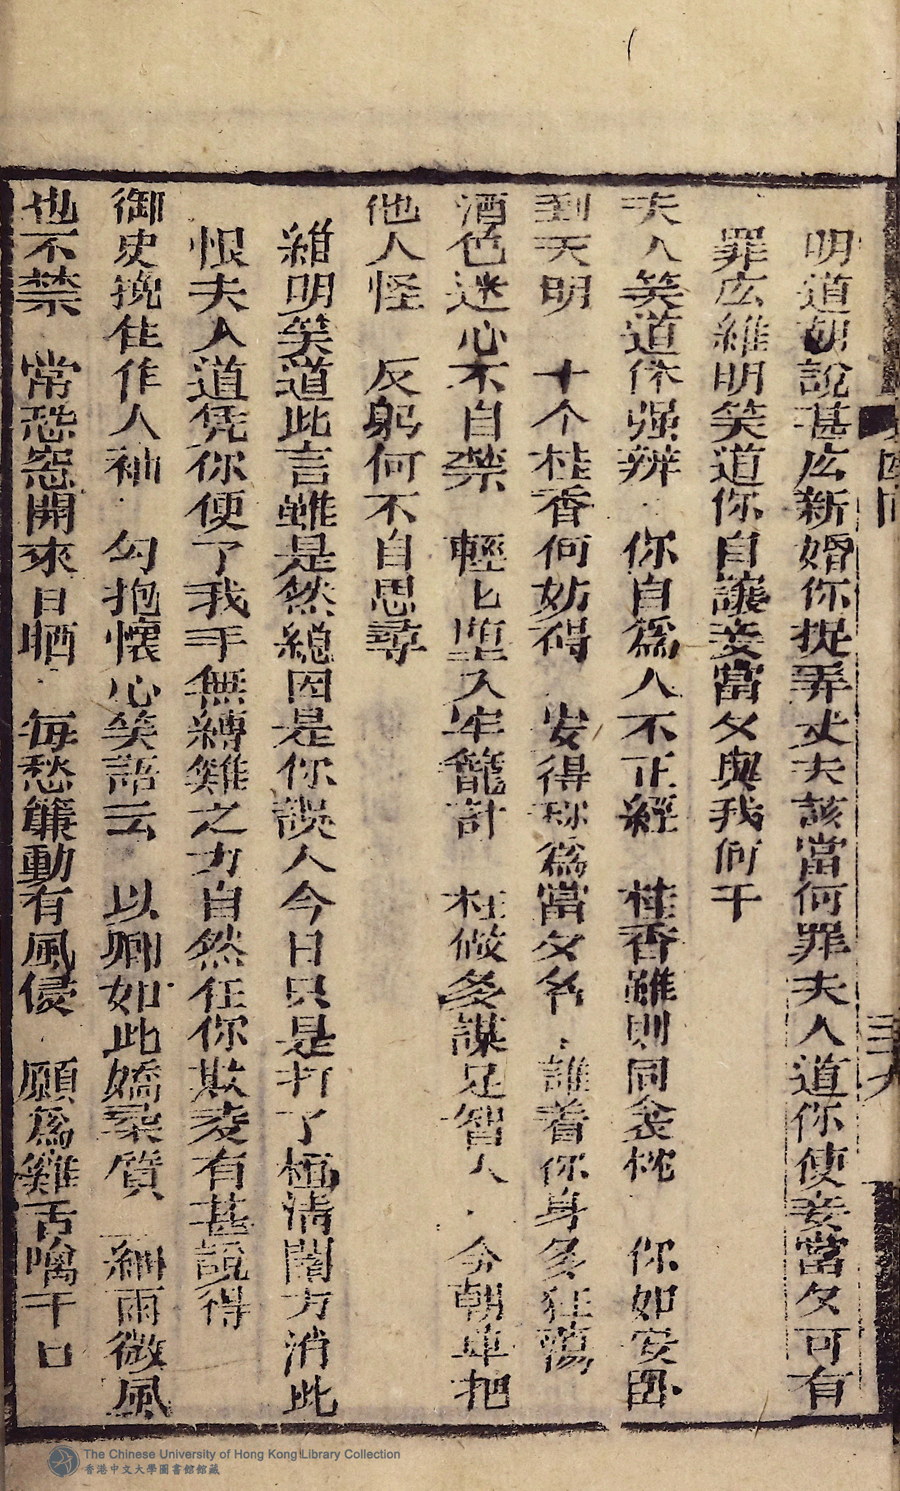 明道胡說甚庅新婚你捉弄丈夫該當何罪夫人道你使妾當夕可有
罪庅維明笑道你自讓妾當夕與我何干
夫人笑道休强辨 你自爲人不正經 桂香雖則同衾枕 你如安卧
到天明 十个桂香何妨碍 安得称爲當夕名 誰着你身多狂蕩
酒色迷心不自禁 輕匕墮入牢籠計 枉做多謀足智人 今朝車把
他人怪 反躬何不自思尋
維明笑道此言雖是然總因是你誤人今日只是打了極清閣方消此
恨夫人道凭你便了我手無縛雞之力自然任你欺凌有甚說得
御史挽住佳人袖 勾抱懷心笑語云 以卿如此嬌柔質 細雨微風
也不禁 常恐窓開來日晒 每愁簾動有風侵 願爲雞舌噙干口
三十九
The Chinese University of Hong Kong Library Collection
香港中文大學圖書館館藏